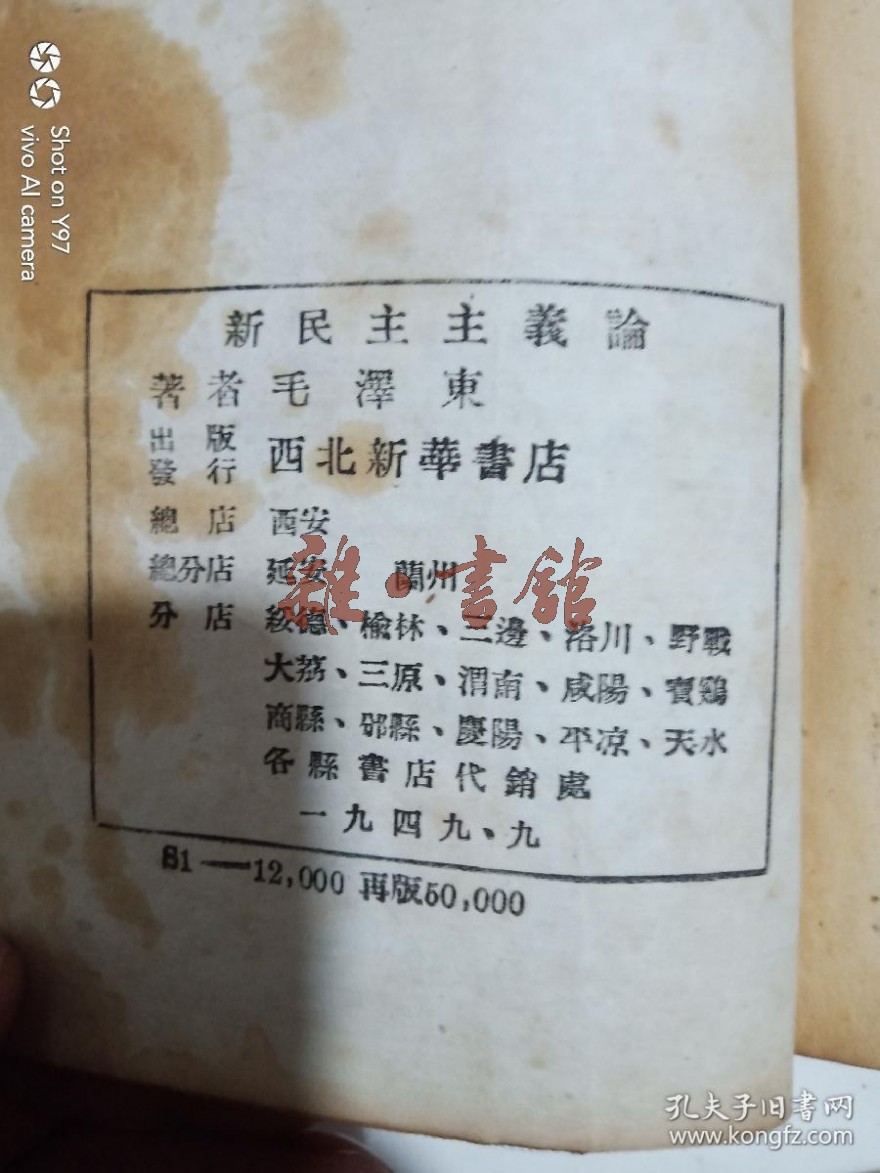 Shot on Y97
vivo AI camera
新民主主義論
著者 毛澤東
出版
發行 西北新華書店
總店 西安
總分店 延安 蘭州
分店 綏德、榆林、三邊、洛川、野戰
大荔、三原、渭南、咸陽、寶鷄
商縣、邠縣、慶陽、平凉、天水
各縣書店代銷處
一九四九、九
S1—12,000 再版50,000
雜·書館
孔夫子旧書网
www.kongfz.com